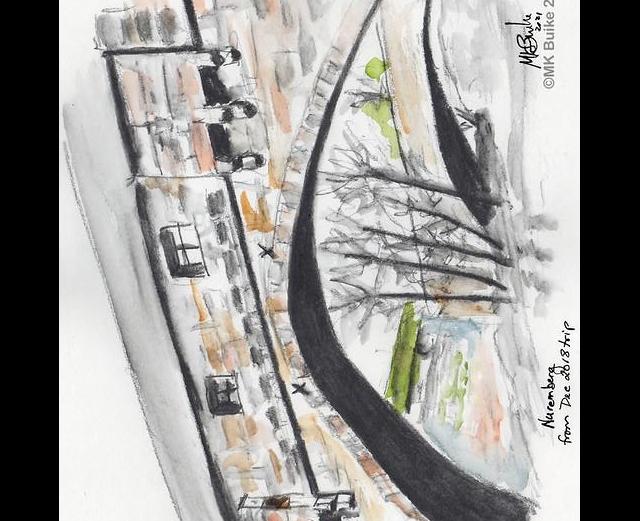 MKBuike
2021
©MK Buike 2
Nuremberg
from Dec 2018 trip